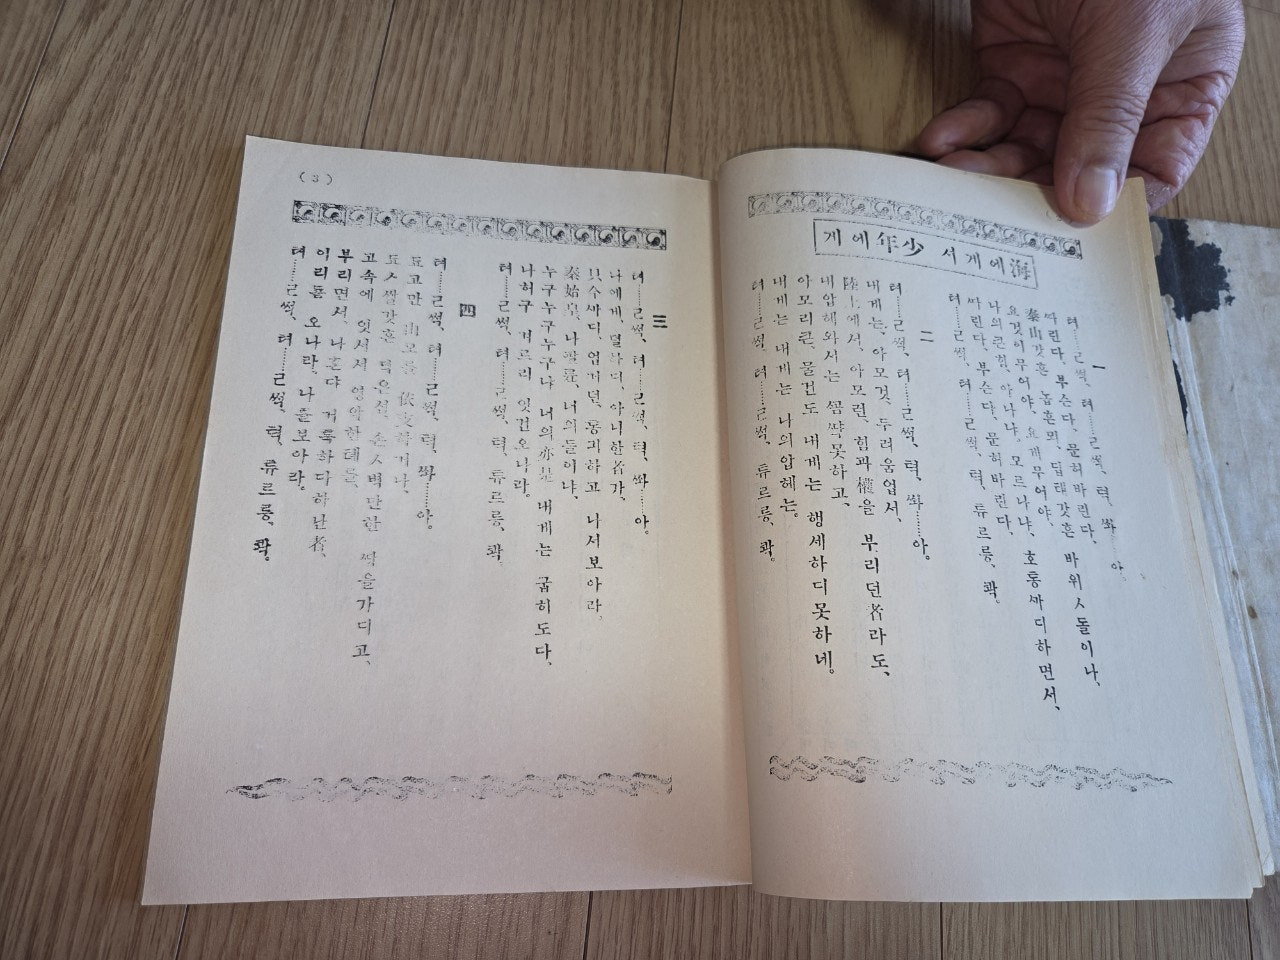 海에게서 少年에게
一
텨……ㄹ썩、텨……ㄹ썩、텩、쏴……아。
ᄯᅡ린다、부슨다、문허바린다、
泰山갓흔 놉흔뫼、딥턔갓흔 바위ㅅ돌이나、
요것이무어야、요게무어야、
나의큰힘、아나냐、모르나냐、호통ᄭᅡ디하면서、
ᄯᅡ린다、부슨다、문허바린다、
텨……ㄹ썩、텨……ㄹ썩、텩、튜르릉、콱。
二
텨……ㄹ썩、텨……ㄹ썩、텩、쏴……아。
내게는、아모것、두려움업서、
陸上에서、아모런、힘과權을 부리던者라도、
내압헤와서는 ᄭᅩᆷᄶᅡᆨ못하고、
아모리큰、물건도 내게는 행세하디못하네。
내게는 내게는 나의압헤는。
텨……ㄹ썩、텨……ㄹ썩、텩、튜르릉、콱。
(3)
三
텨……ㄹ썩、텨……ㄹ썩、텩、쏴……아。
나에게、뎔하디、아니한者가、
只今ᄭᅡ디、업거던、통긔하고 나서보아라。
秦始皇、나팔륜、너의들이냐、
누구누구누구냐 너의亦是 내게는 굽히도다、
나허구 겨르리 잇건오나라。
텨……ㄹ썩、텨……ㄹ썩、텩、튜르릉、콱。
四
텨……ㄹ썩、텨……ㄹ썩、텩、쏴……아。
됴고만 山모를 依支하거나、
됴ㅅ쌀갓흔 뎍은섬、손ㅅ벽만한 ᄯᅡᆼ을가디고、
고속에 잇서서 영악한톄를、
부리면서、나혼댜 거룩하다하난者、
이리돔 오나라、나를보아라。
텨……ㄹ썩、텨……ㄹ썩、텩、튜르릉、콱。